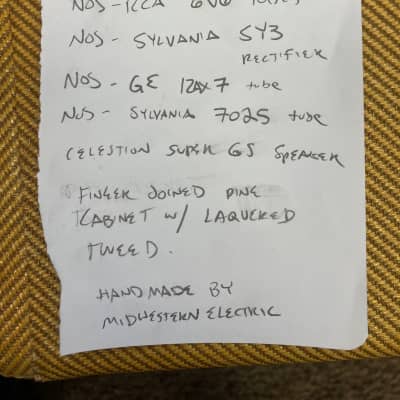 NOS - RCA 6V6 TUBES
NOS - SYLVANIA 5Y3
RECTIFIER
NOS - GE 12AX7 tube
NOS - SYLVANIA 7025 tube
CELESTION SUPER G5 SPEAKER
FINGER JOINED PINE
CABINET W/ LAQUERED
TWEED.
HANDMADE BY
MIDWESTERN ELECTRIC